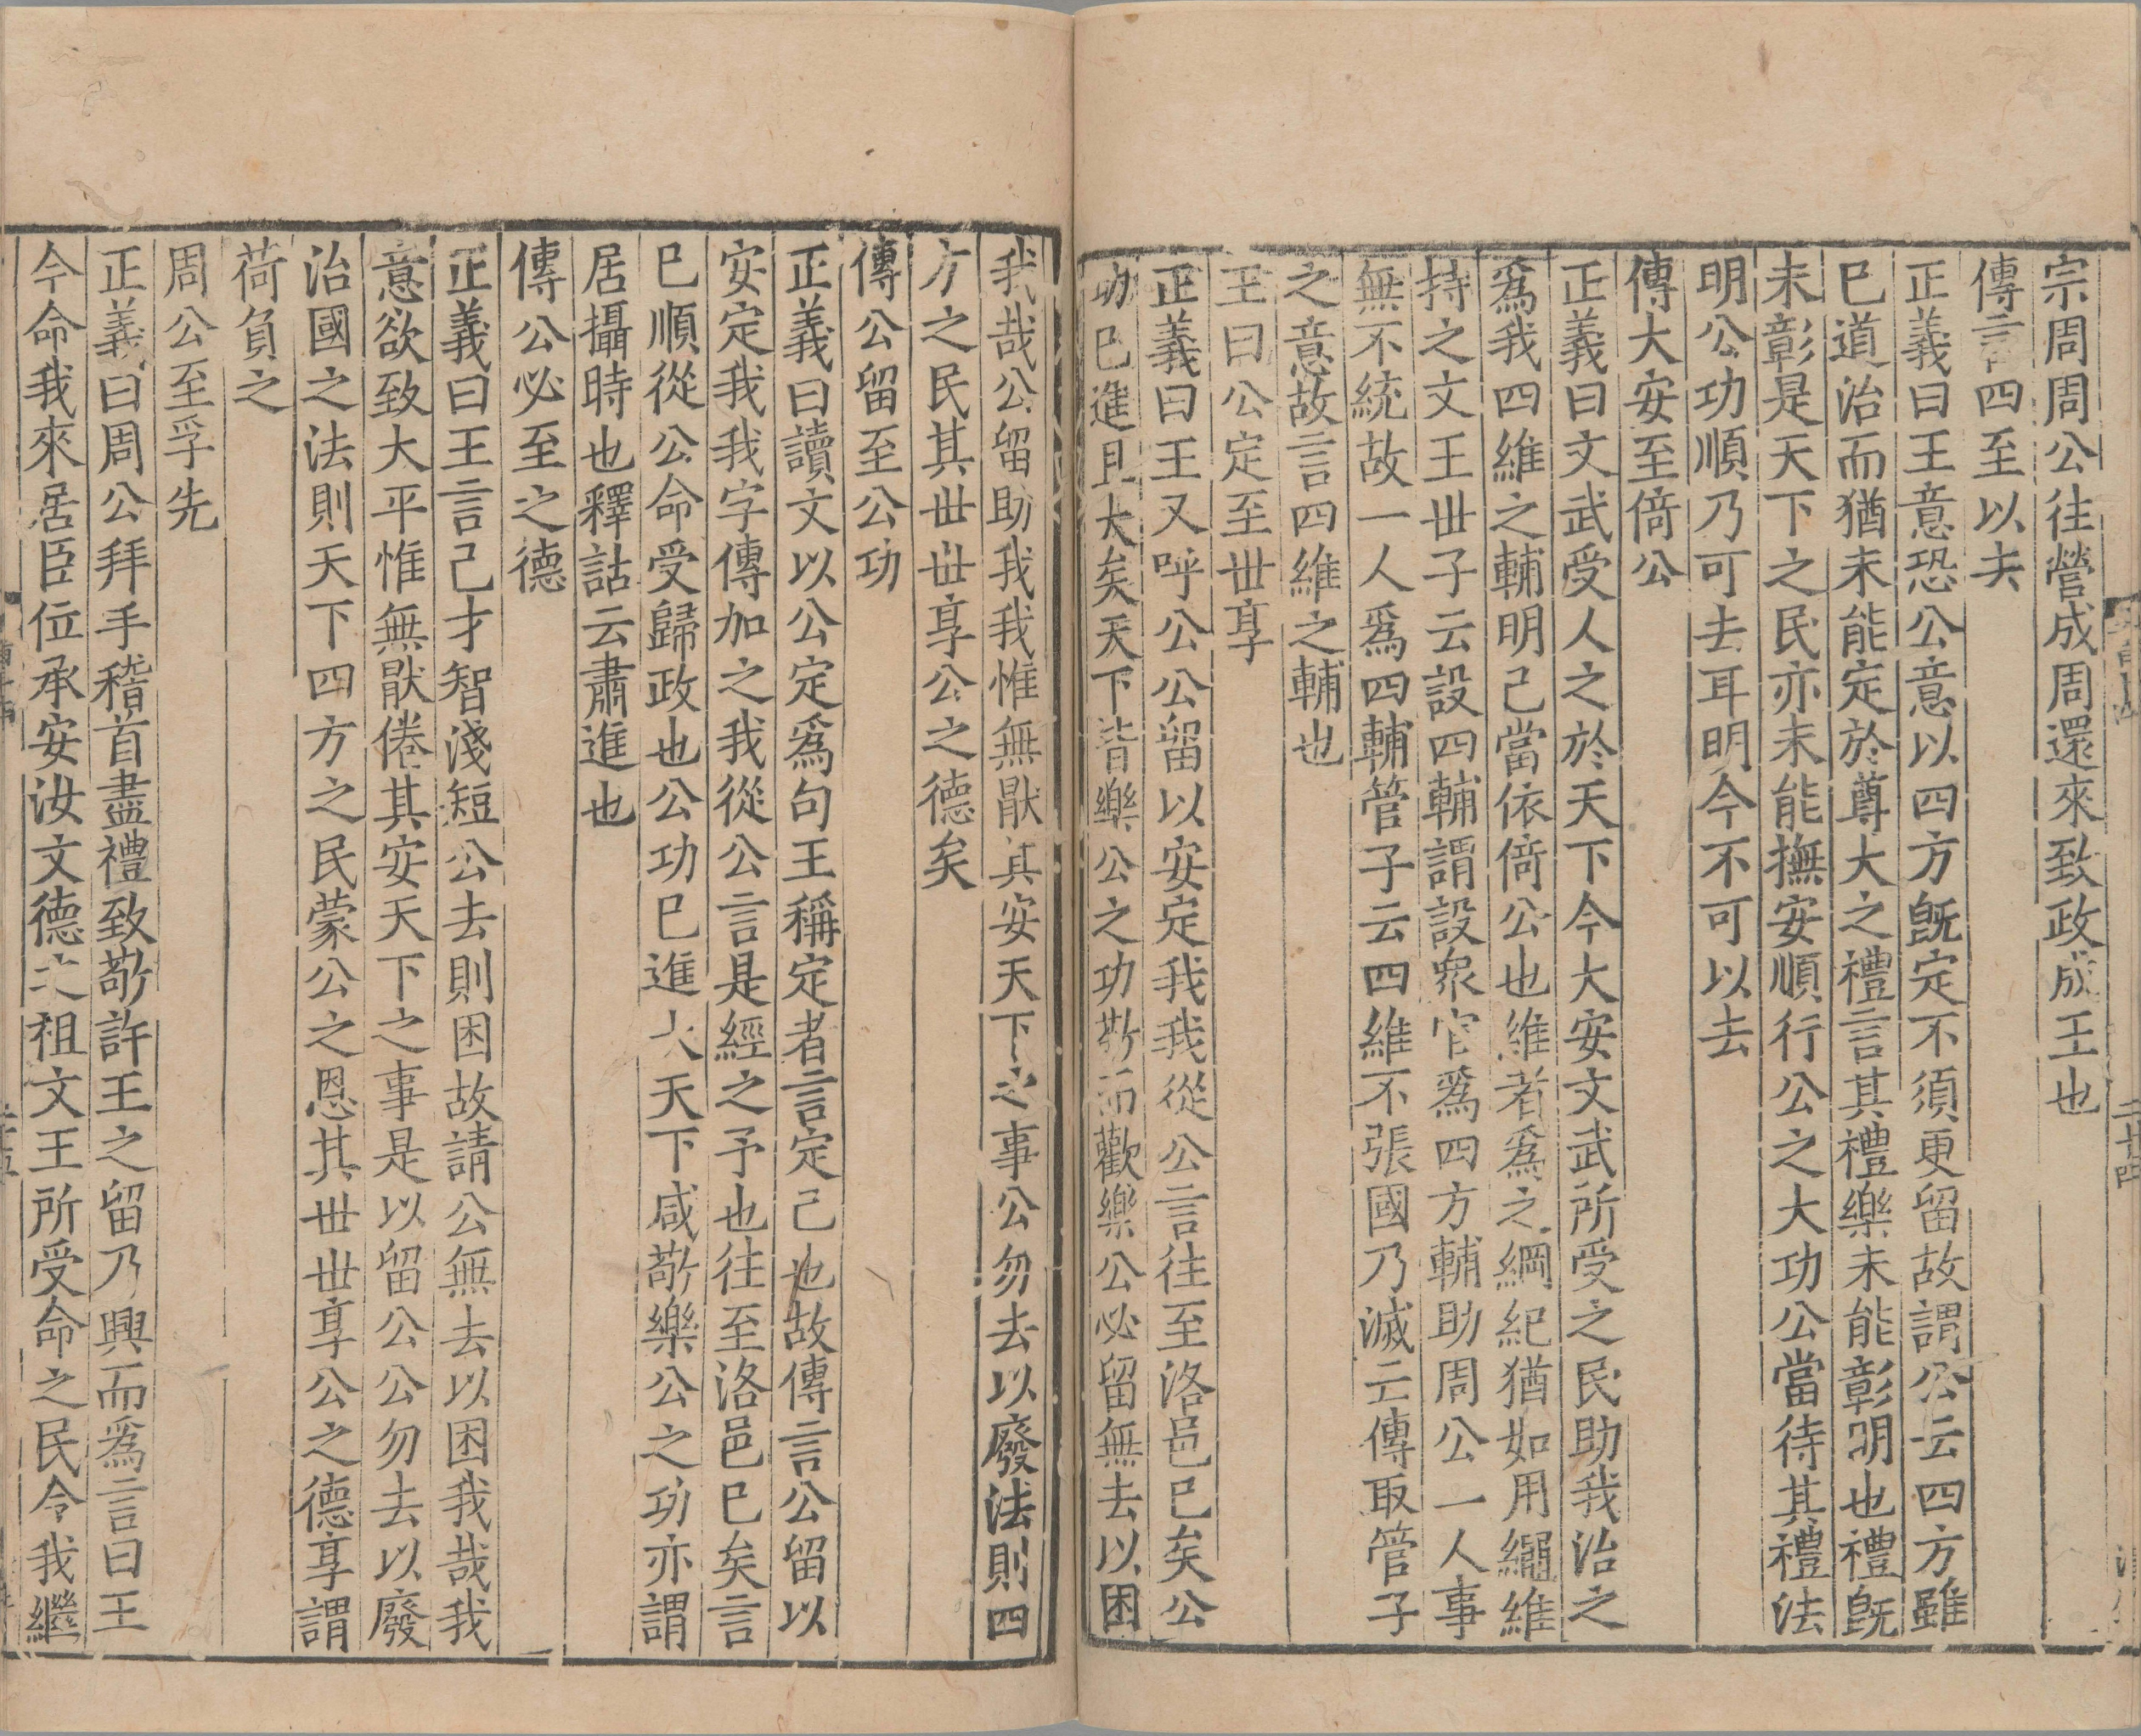 宗周周公往營成周還來致政成王也
傳言四至以去
正義曰王意恐公意以四方旣定不須更留故謂公云四方雖
巳道治而猶未能定於尊大之禮言其禮樂未能彰明也禮旣
未彰是天下之民亦未能撫安順行公之大功公當待其禮法
明公功順乃可去耳明今不可以去
傳大安至倚公
正義曰文武受人之於天下今大安文武所受之民助我治之
爲我四維之輔明己當依倚公也維者爲之綱紀猶如用繩維
持之文王世子云設四輔謂設衆官爲四方輔助周公一人事
無不統故一人爲四輔管子云四維不張國乃滅亡傳取管子
之意故言四維之輔也
王曰公定至世享
正義曰王又呼公公留以安定我我從公言往至洛邑巳矣公
功巳進且大矣天下皆樂公之功敬而歡樂公必留無去以困
我哉公留助我我惟無猒其安天下之事公勿去以廢法則四
方之民其世世享公之德矣
傳公留至公功
正義曰讀文以公定爲句王稱定者言定己也故傳言公留以
安定我我字傳加之我從公言是經之予也往至洛邑巳矣言
巳順從公命受歸政也公功巳進大天下咸敬樂公之功亦謂
居攝時也釋詁云肅進也
傳公必至之德
正義曰王言己才智淺短公去則困故請公無去以困我哉我
意欲致大平惟無猒倦其安天下之事是以留公公勿去以廢
治國之法則天下四方之民蒙公之恩其世世享公之德享謂
荷負之
周公至孚先
正義曰周公拜手稽首盡禮致敬許王之留乃興而爲言曰王
今命我來居臣位承安汝文德之祖文王所受命之民令我繼